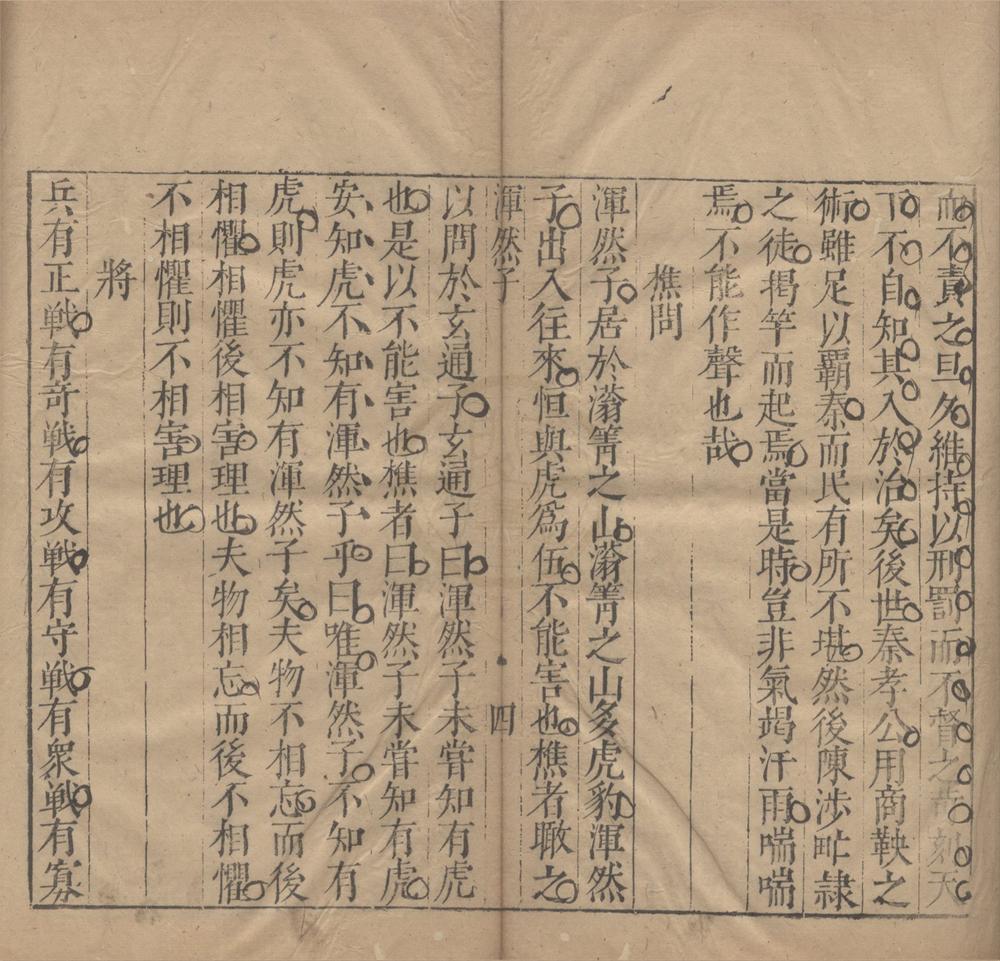 而不責之旦夕維持以刑罰而不督之苛刻天
下不自知其入於治矣後世秦孝公用商鞅之
術雖足以霸秦而民有所不堪然後陳涉甿隷
之徒揭竿而起焉當是時豈非氣竭汗雨喘喘
焉不能作聲也哉
樵問
渾然子居於滃箐之山滃箐之山多虎豹渾然
子出入往來恒與虎爲伍不能害也樵者瞰之
渾然子
四
以問於玄通子玄通子曰渾然子未甞知有虎
也是以不能害也樵者曰渾然子未甞知有虎
安知虎不知有渾然子乎曰唯渾然子不知有
虎則虎亦不知有渾然子矣夫物不相忘而後
相懼相懼後相害理也夫物相忘而後不相懼
不相懼則不相害理也
將
兵有正戦有竒戦有攻戦有守戦有衆戦有寡